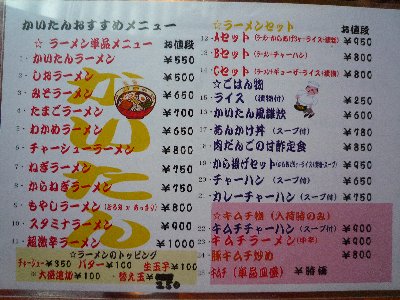 かいたんおすすめメニュー
☆ラーメン単品メニュー お値段
1. かいたんラーメン ¥550
2. しおラーメン ¥600
3. みそラーメン ¥650
4. たまごラーメン ¥650
5. わかめラーメン ¥650
6. チャーシューラーメン ¥800
7. ねぎラーメン ¥750
8. からねぎラーメン ¥750
9. もやしラーメン ¥800
10. スタミナラーメン ¥900
11. 超激辛ラーメン ¥1000
かいたん
☆ラーメンのトッピング
チャーシュー¥350 バター¥100 生玉子¥100
※大盛追加 ¥100 替え玉
☆ラーメンセット お値段
12. Aセット ¥950
13. Bセット (ラーメン・チャーハン) ¥800
14. Cセット ¥950
☆ごはん物
15. ライス (漬物付)
かいたん風雑炊
あんかけ丼 (スープ付) ¥800
肉だんごの甘酢定食 ¥800
から揚げセット
チャーハン (スープ付)
21. カレーチャーハン (スープ付) ¥800
☆キムチ物 (入荷時のみ)
22. キムチチャーハン (スープ付) ¥900
23. キムチラーメン (中辛) ¥900
24. 豚キムチ炒め ¥800
25. (単品皿盛) ¥時価